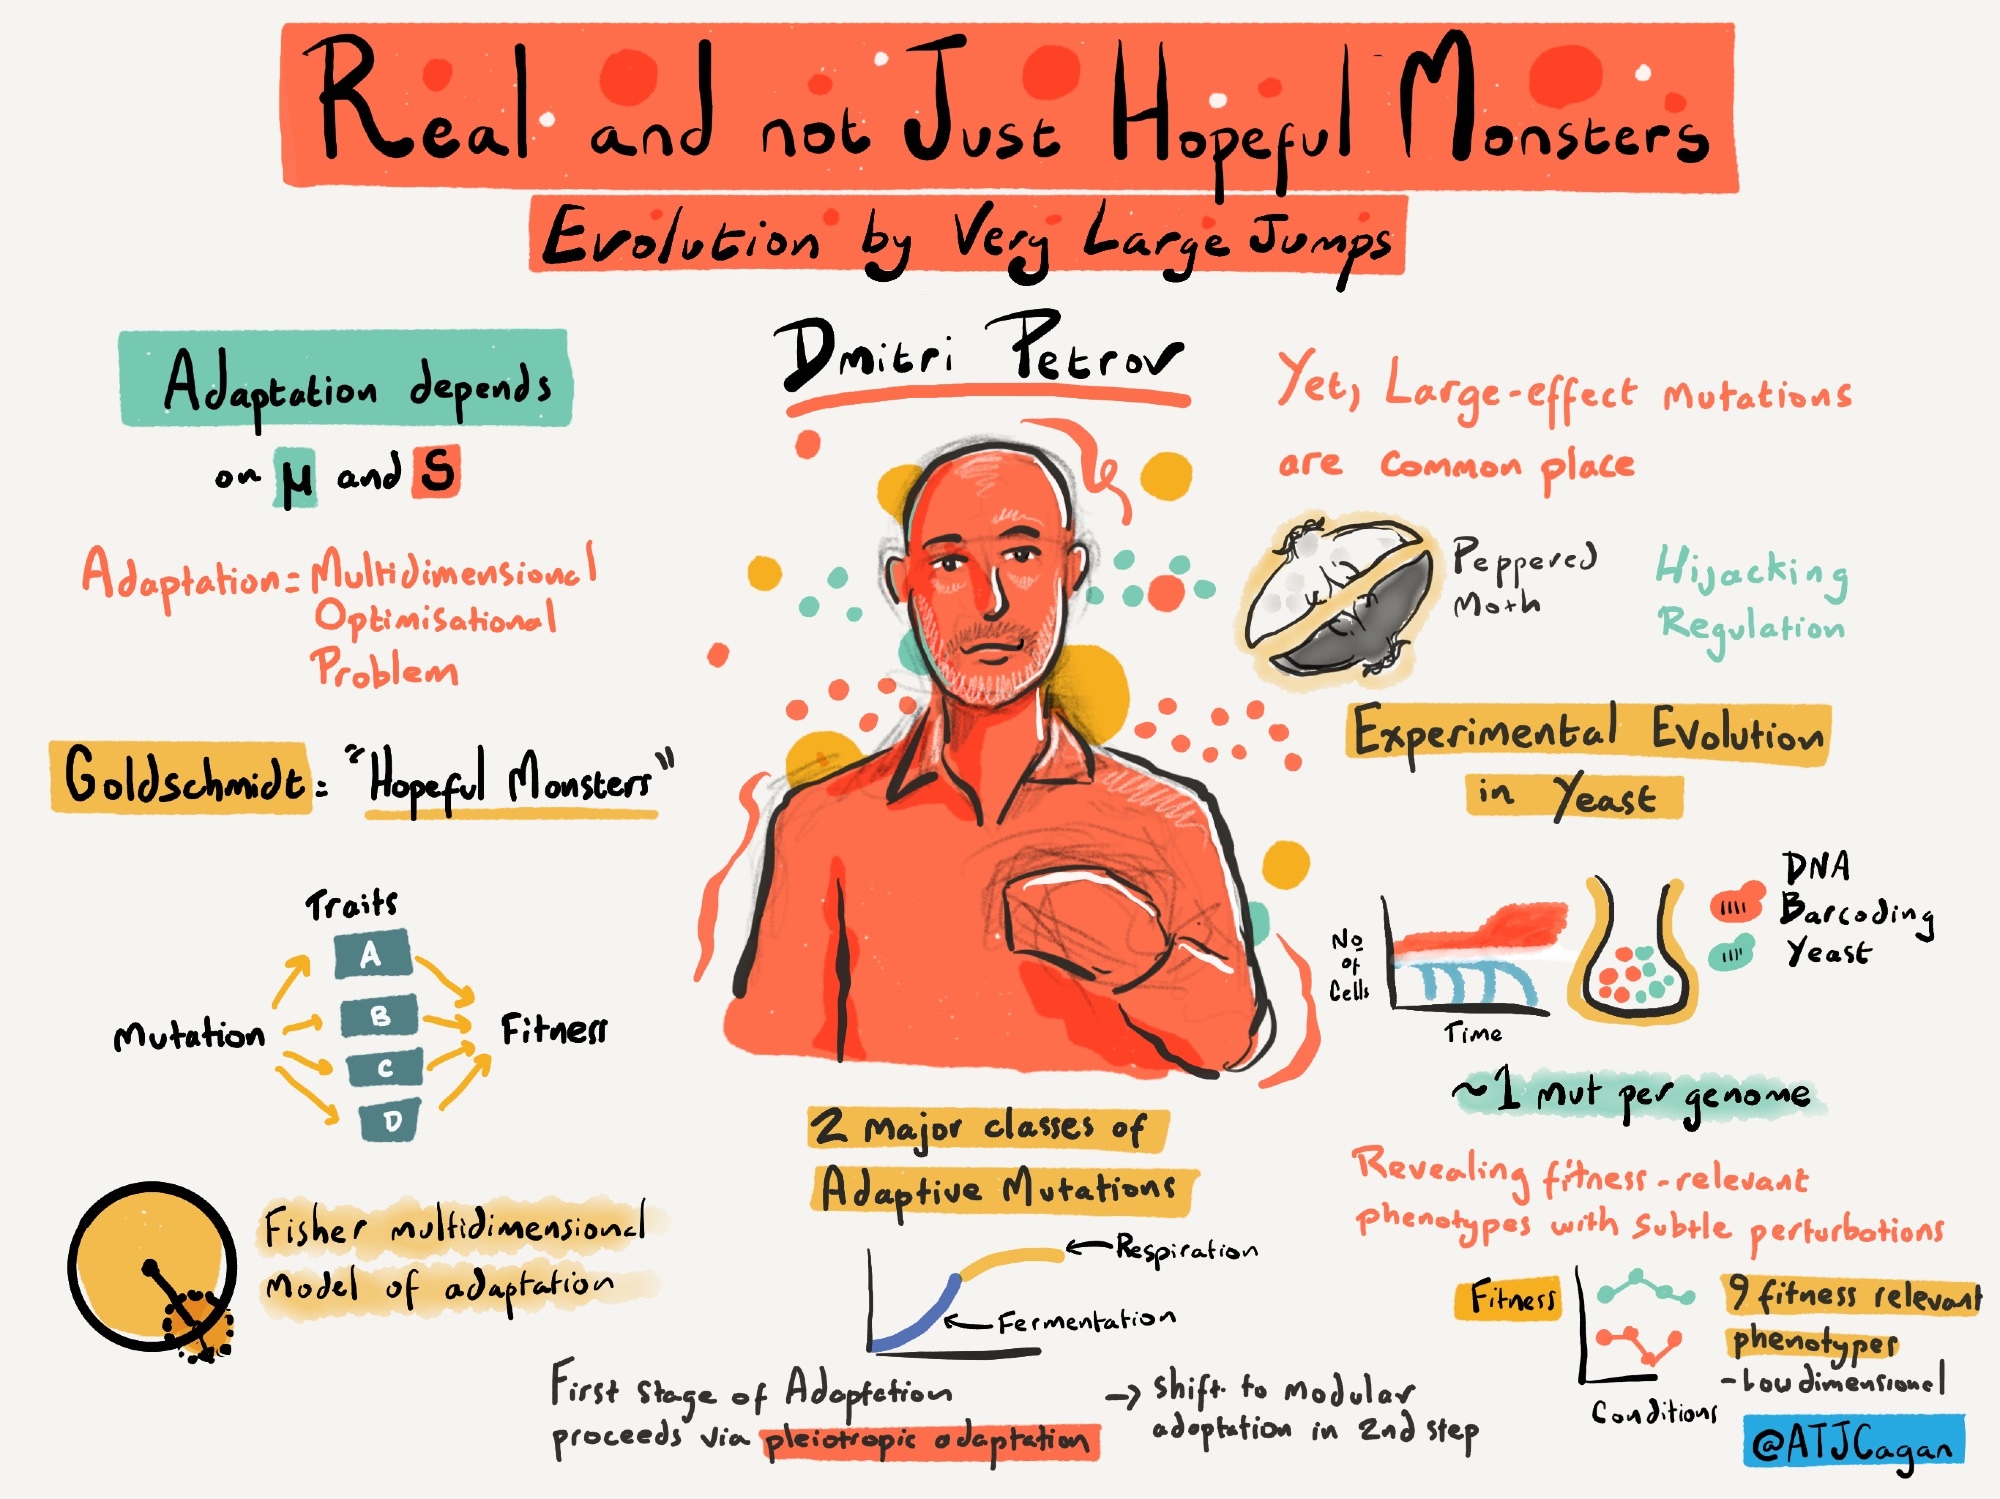 Real and not Just Hopeful Monsters
Evolution by Very Large Jumps
Dmitri Petrov
Adaptation depends
on μ and S
Adaptation = Multidimensional
Optimisational
Problem
Goldschmidt = "Hopeful Monsters"
Traits
A
B
C
D
Mutation
Fitness
Fisher multidimensional
Model of adaptation
2 major classes of
Adaptive Mutations
Respiration
Fermentation
First stage of Adaptation
proceeds via pleiotropic adaptation
→ shift to modular
adaptation in 2nd step
Yet, Large-effect mutations
are common place
Peppered
Moth
Hijacking
Regulation
Experimental Evolution
in Yeast
No
of
Cells
Time
DNA
Barcoding
Yeast
~1 mut per genome
Revealing fitness-relevant
phenotypes with subtle perturbations
Fitness
Conditions
9 fitness relevant
phenotypes
- Low dimensional
@ATJCagan